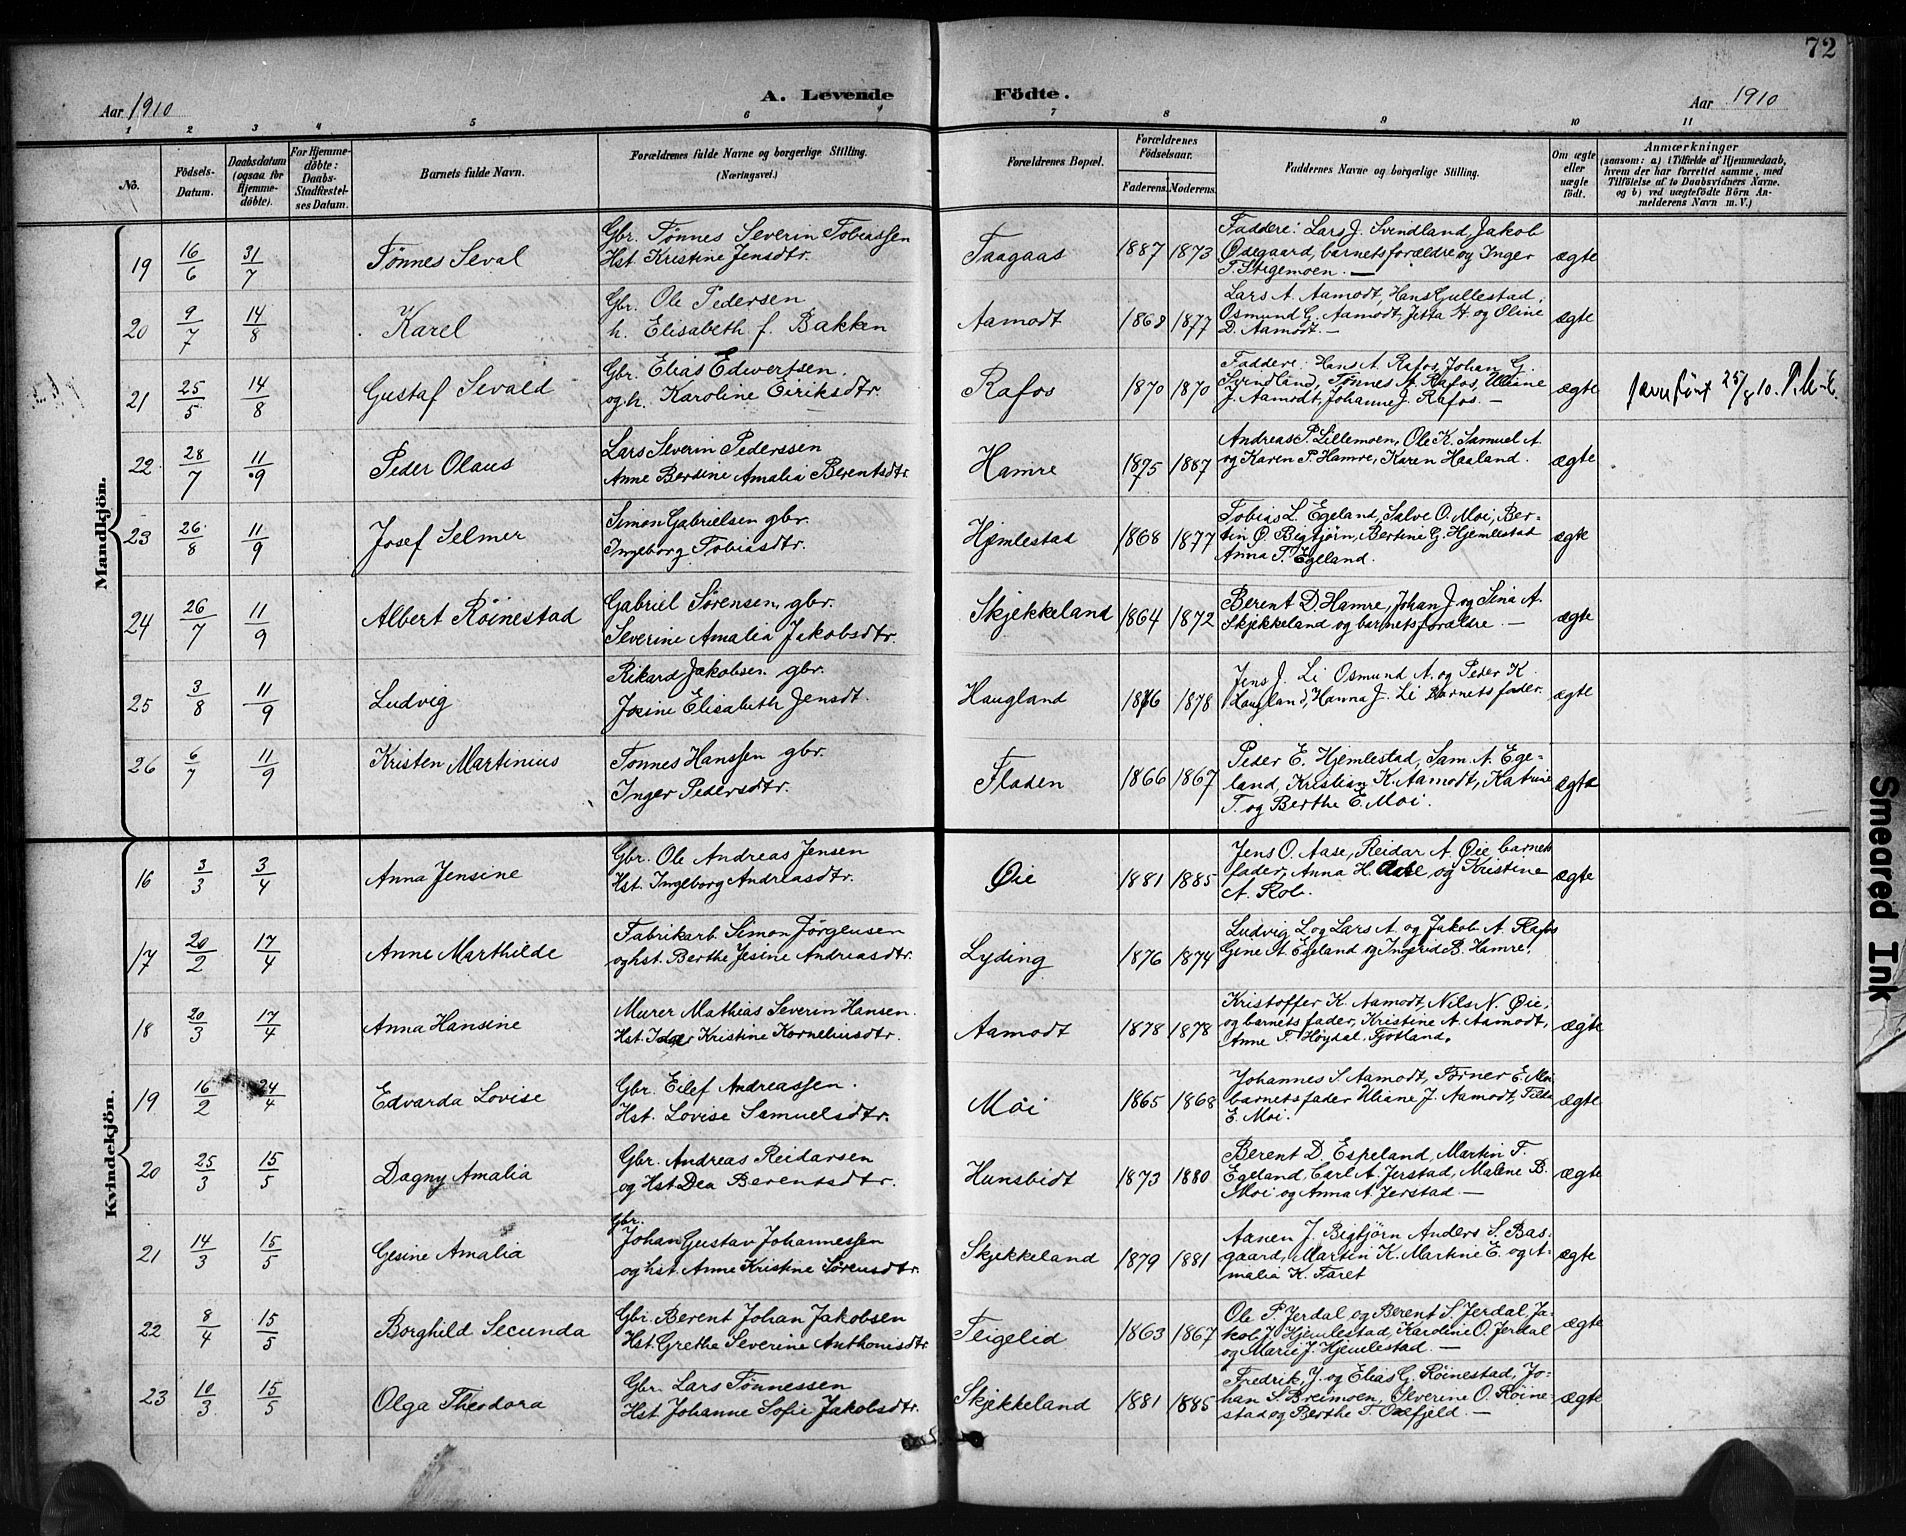 72
A. Levende Födte.
Aar 1910
Aar 1910
1 2 3 4 5 6 7 8 9 10 11
No.
Födsels-Datum.
Daabsdatum (ogsaa for Hjemme-döbte).
For Hjemme-döbte: Daabs-Stadfæstel-ses Datum.
Barnets fulde Navn.
Forældrenes fulde Navne og borgerlige Stilling. (Næringsvei.)
Forældrenes Bopæl.
Forældrenes Födselsaar.
Faderens. Moderens.
Faddernes Navne og borgerlige Stilling.
Om ægte eller uægte födt.
Anmærkninger
(saasom: a) i Tilfælde af Hjemmedaab, hvem der har forrettet samme, med Tilföielse af to Daabsvidners Navne, og b) ved uægtefödte Börn An-melderens Navn m. V.)
Mandkjön.
19 16/6 31/7 Tønnes Seval
Gbr. Tønnes Severin Tobiassen
Hst. Kristine Jensdtr.
Faagaas 1887 1873
Faddere: Lars J. Svindland, Jakob
Ødegaard, barnets forældre og Inger
T. Stigemoen. —
ægte
20 9/7 14/8 Karel
Gbr. Ole Pedersen
h. Elisabeth f. Bakken
Aamodt 1868 1877
Lars A. Aamodt, Hans Gullestad,
Osmund G. Aamodt, Jetta H. og Oline
D. Aamodt. —
ægte
21 25/5 14/8 Gustaf Sevald
Gbr. Elias Edwertsen.
og h. Karoline Eiriksdtr.
Rafos 1870 1870
Faddere: Hans A. Rafos, Johan G.
Svindland, Tønnes A. Rafos, Uliane
J. Aamodt, Johanne J. Rafos. —
ægte
25/8 10.
22 28/7 11/9 Peder Olaus
Lars Severin Pederssen
Anne Berdine Amalia Berentsdtr.
Hamre 1875 1887
Andreas P. Lillemoen, Ole K. Samuel A.
og Karen P. Hamre, Karen Haaland.
ægte
23 26/8 11/9 Josef Selmer
Simon Gabrielsen gbr.
Ingeborg Tobiasdtr.
Hjemlestad 1868 1877
Tobias L. Egeland, Salve O. Moi, Ber-
tin O. Bigtjørn, Bertine G. Hjemlestad
Anna T. Egeland.
ægte
24 26/7 11/9 Albert Röinestad
Gabriel Sørensen, gbr.
Severine Amalia Jakobsdtr.
Skjekkeland 1864 1872
Berent D. Hamre, Johan J. og Sina A.
Skjekkeland og barnets forældre. —
ægte
25 3/8 11/9 Ludvig
Rikard Jakobsen gbr.
Josine Elisabeth Jensdt.
Haugland 1876 1878
Jens J. Li Osmund A. og Peder K.
Haugland, Hanna J. Li barnets fader.
ægte
26 6/7 11/9 Kristen Martinius
Tønnes Hanssen gbr.
Inger Pedersdtr.
Fladen 1866 1867
Peder E. Hjemlestad, Sam. A. Ege-
land, Kristian K. Aamodt, Katrine
T. og Berthe E. Moi.
ægte
Kvindekjön.
16 3/3 3/4 Anna Jensine
Gbr. Ole Andreas Jensen
Hst. Ingeborg Andreasdtr.
Øie 1881 1885
Jens O. Aase, Reidar A. Øie barnets
fader, Anna H. Aase, og Kristine
A. Rob.
ægte
17 20/2 17/4 Anne Marthilde
Fabrikarb. Simon Jørgensen
og hst. Berthe Jesine Andreasdtr.
Lyding 1876 1874
Ludvig L. og Lars A. og Jakob A. Rafos
Gine A. Egeland og Ingrid B. Hamre.
18 20/3 17/4 Anna Hansine
Murer Mathias Severin Hansen.
Hst. Kristine Korneliusdtr.
Aamodt 1878 1878
Kristoffer K. Aamodt, Nils N. Øie,
og barnets fader, Kristine A. Aamodt,
Anne T. Høydal, Fjotland.
ægte
19 16/2 24/4 Edvarda Lovise
Gbr. Eilef Andreassen.
Hst. Lovise Samuelsdtr.
Moi 1865 1868
Johannes S. Aamodt, Tørner E. Moi
barnets fader Uliane J. Aamodt, Tilda
E. Moi.
ægte
20 25/3 15/5 Dagny Amalia
Gbr. Andreas Reidarsen
og Hst Dea Berentsdtr.
Hunsbidt 1873 1880
Berent D. Espeland, Martin T.
Egeland, Carl A. Jerstad, Malene B.
Moi og Anna A. Jerstad —
ægte
21 14/3 15/5 Gesine Amalia
Gbr.
Johan Gustav Johannessen
og hst. Anne Kristine Sørensdtr.
Skjekkeland 1879 1881
Aanen J. Bigtjørn Anders S. Bas-
gaard, Martin K. Martine E. og A-
malia K. Faret
ægte
22 8/4 15/5 Borghild Secunda
Gbr. Berent Johan Jakobsen
Hst. Grethe Severine Anthonisdtr
Teigelid 1863 1867
Ole P. Jerdal og Berent S. Jerdal, Ja-
kob J. Hjemlestad, Karoline O. Jerdal
og Marie J. Hjemlestad. —
ægte
23 10/3 15/5 Olga Theodora
Gbr. Lars Tønnessen
Hst. Johanne Sofie Jakobsdtr.
Skjekkeland 1881 1885
Fredrik J. og Elias G. Röinestad, Jo-
han S. Breimoen, Severine O. Röine-
stad og Berthe T. Oxefjeld. —
ægte
Smeared Ink